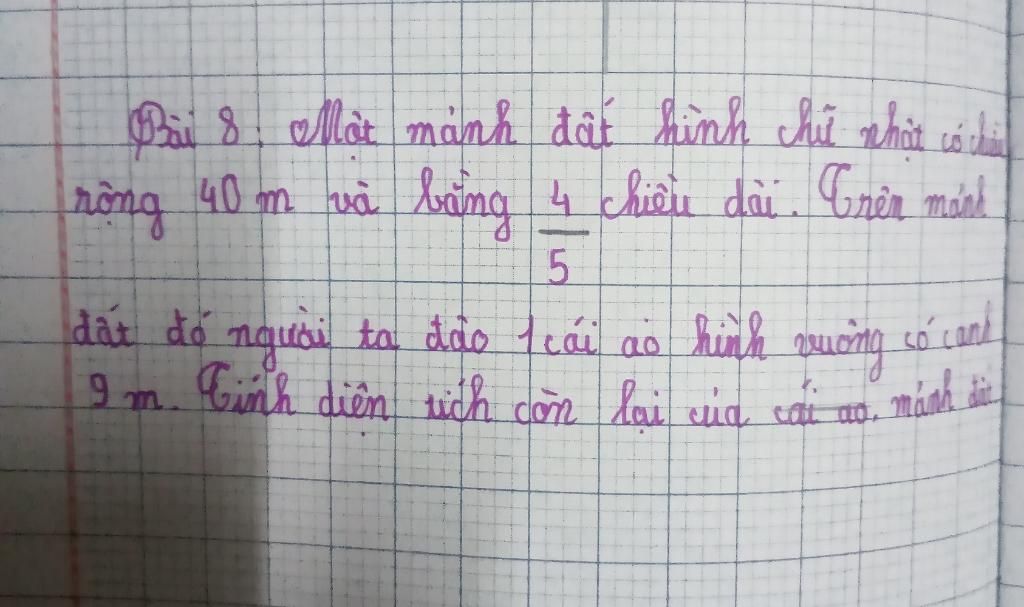 Bài 8: Một mảnh đất hình chữ nhật có chiều
rộng 40 m và bằng 4/5 chiều dài. Trên mảnh
đất đó người ta đào 1 cái ao hình vuông có cạnh
9 m. Tính diện tích còn lại của cái ao. mảnh đất